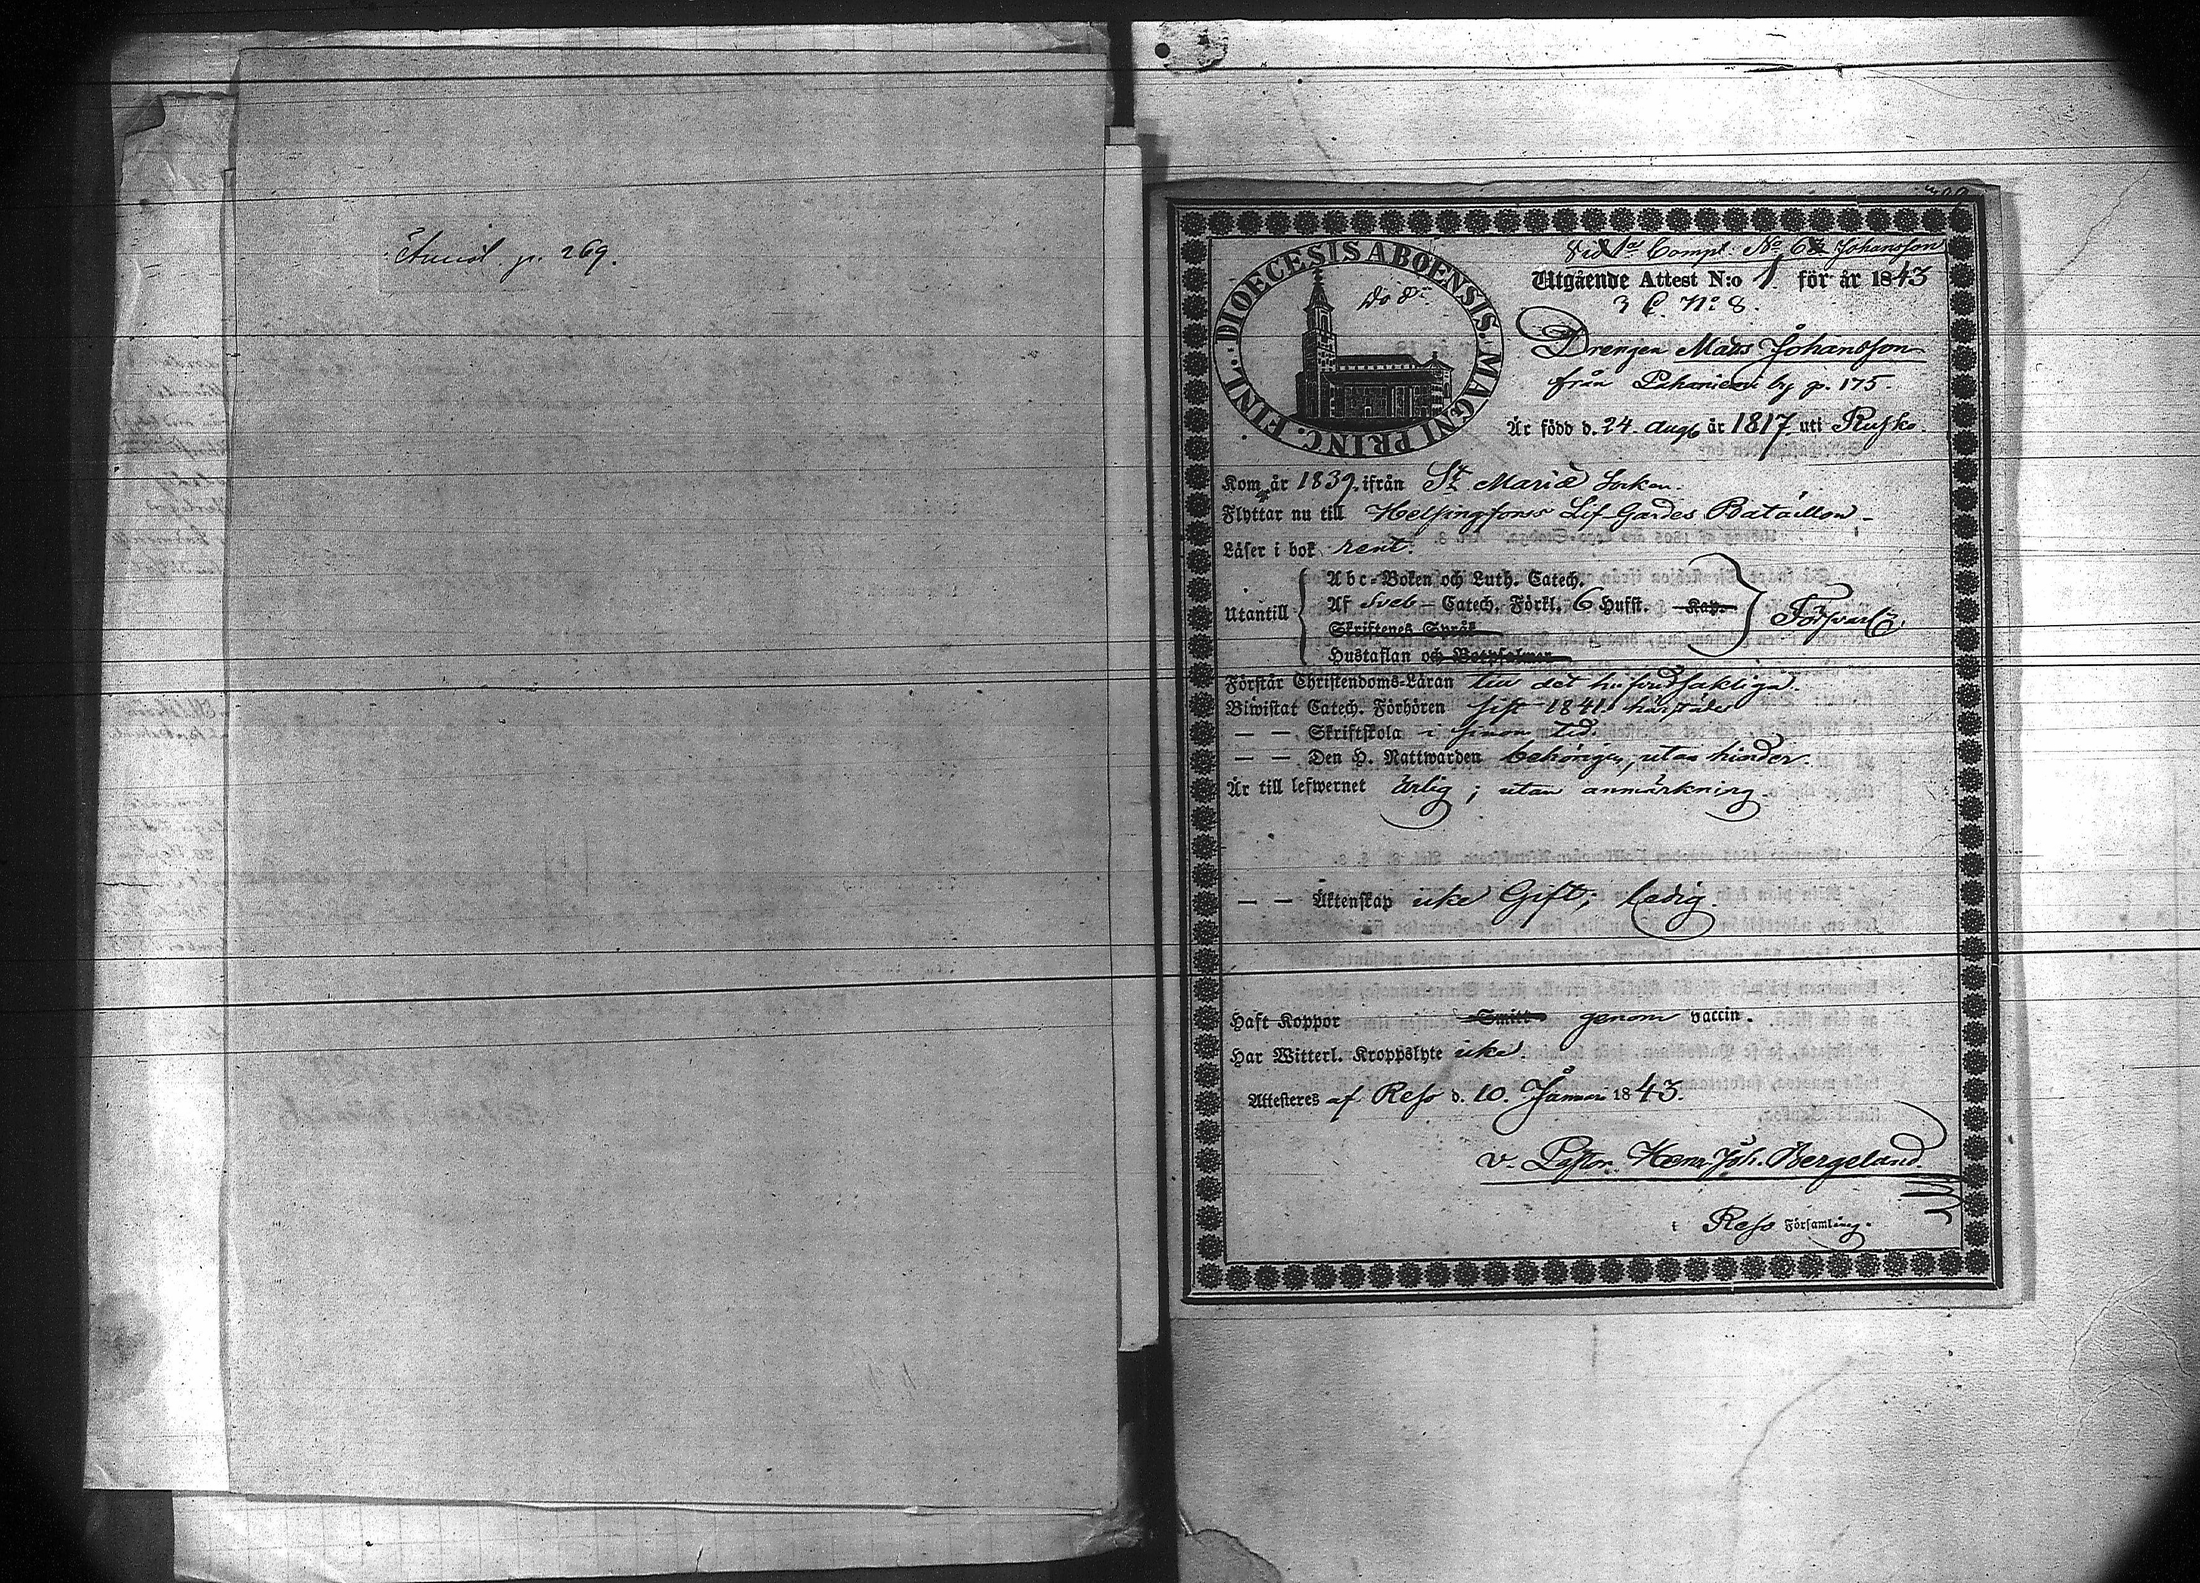 p. 269.
DIOECESIS ABOENSIS. MAGNI PRINC. FINL.
Död
Vid 1a Comp. No 62 Johansson
Utgående Attest N:o 1 för år 1843
3 C. No 8.
Drengen Mats Johansson
från by p. 175.
Är född d. 24 Aug. år 1817. uti Rusko.
Kom år 1839. ifrån St Mariæ Socken.
Flyttar nu till Helsingfors Lif-Gardes Bataillon.
Läser i bok rent.
Utantill
Abc-Boken och Luth. Catech.
Af Sveb Catech. Förkl. 6 Hufst. Kap.
Skriftenes Språk
Hustaflan och Botpsalmer
Försvarl.
Förstår Christendoms-Läran det hufvudsakliga.
Biwistat Catech. Förhören sist 1841 härstädes
— — Skriftskola i sinom tid.
— — Den H. Nattwarden behörigen, utan hinder.
Är till lefwernet ärlig; utan anmärkning
— — Äktenskap icke Gift; ledig.
Haft Koppor Smitt genom vaccin.
Har Witterl. Kroppslyte icke
Attesteres af Reso d. 10. Januari 1843.
v. Pastor. Henr. Joh. Bergelund.
i Reso Församling.